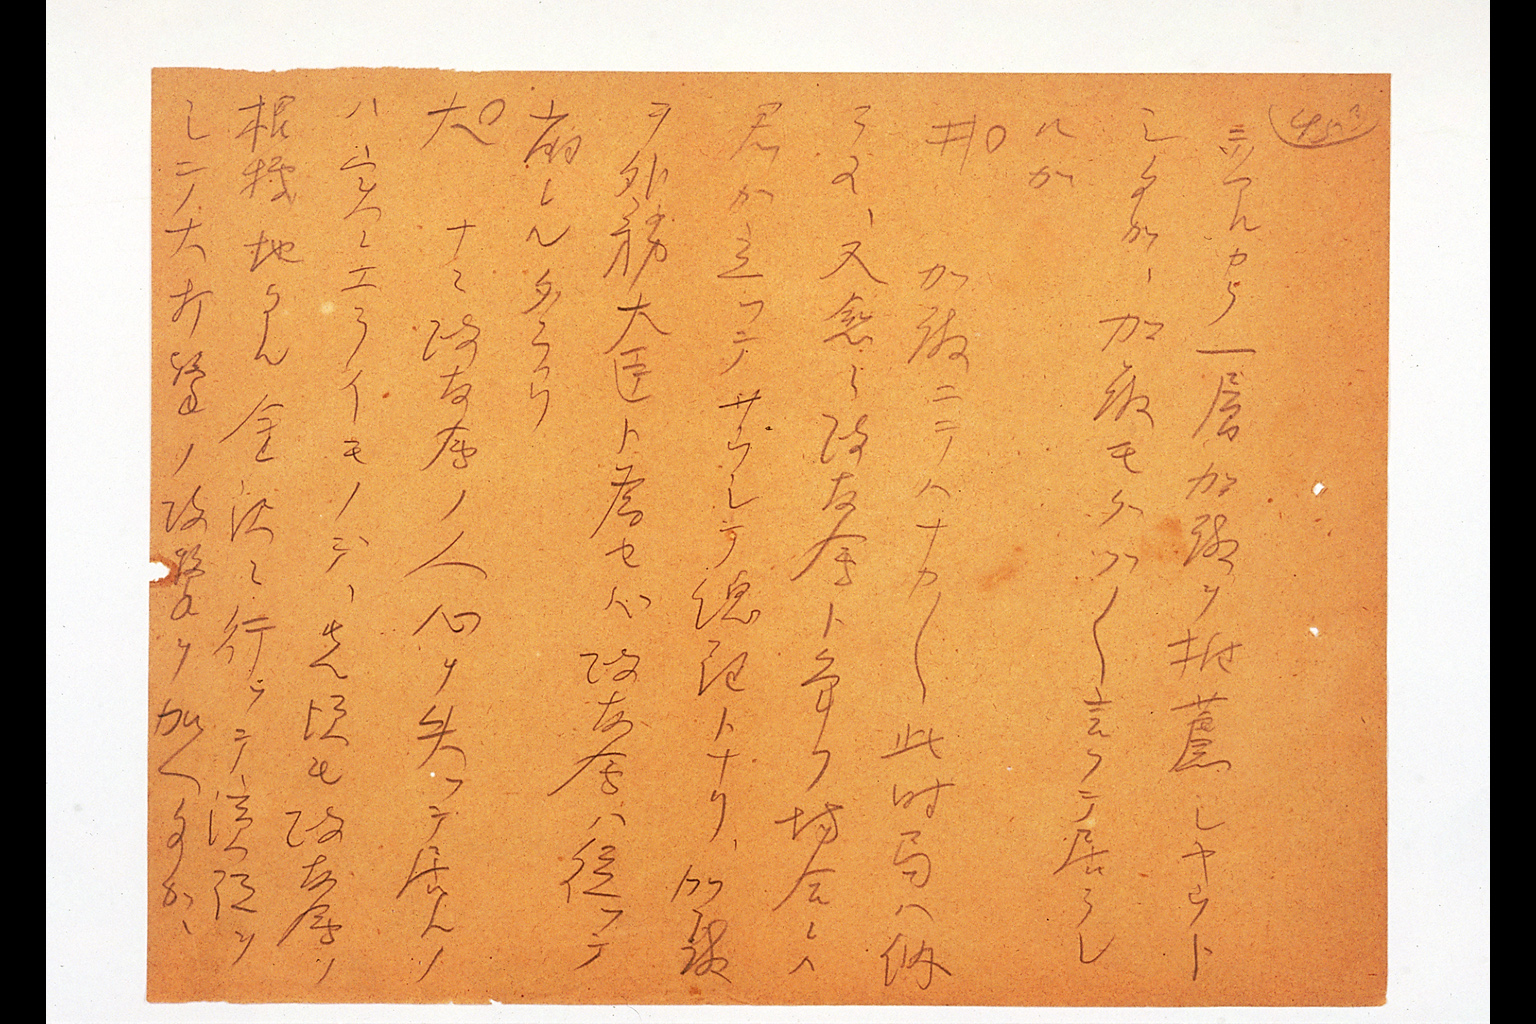 三ツアルカラ一層加藤ヲ推薦シヤウト
シタガ、加藤モグツ〱言ツテ居ラレ
ルカ
井○ 加藤ニテハナカ〱此時局ハ納
ラヌ、又愈々政友会ト争フ場合ニハ
君カ立ツテサウシテ総理トナリ、加藤
ヲ外務大臣ト為セハ政友会ハ従ツテ
崩レルダラウ
大○ ナニ政友会ノ人心ヲ失ツテ居ルノ
ハ実ニエライモノデ、先頃モ政友会ノ
根拠地タル金沢ニ行ツテ演説ヲ
シテ大打撃ノ攻撃ヲ加ヘタガ、